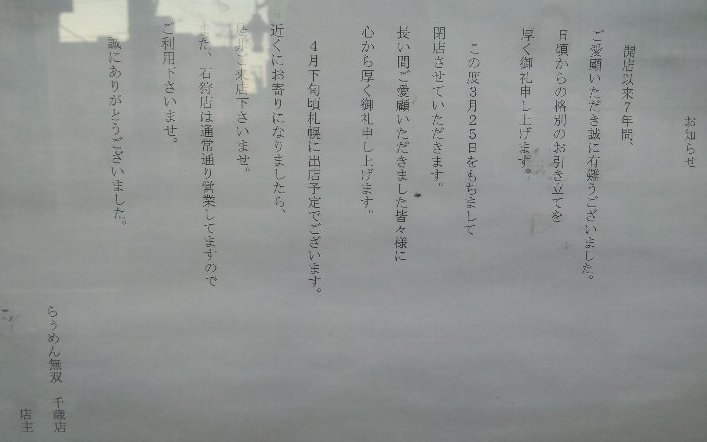 お知らせ
開店以来7年間、
ご愛顧いただき誠に有難うございました。
日頃からの格別のお引き立てを
厚く御礼申し上げます。
この度3月25日をもちまして
閉店させていただきます。
長い間ご愛顧いただきました皆々様に
心から厚く御礼申し上げます。
4月下旬頃札幌に出店予定でございます。
近くにお寄りになりましたら、
是非ご来店下さいませ。
また、石狩店は通常通り営業してますので
ご利用下さいませ。
誠にありがとうございました。
らぅめん無双 千歳店
店主